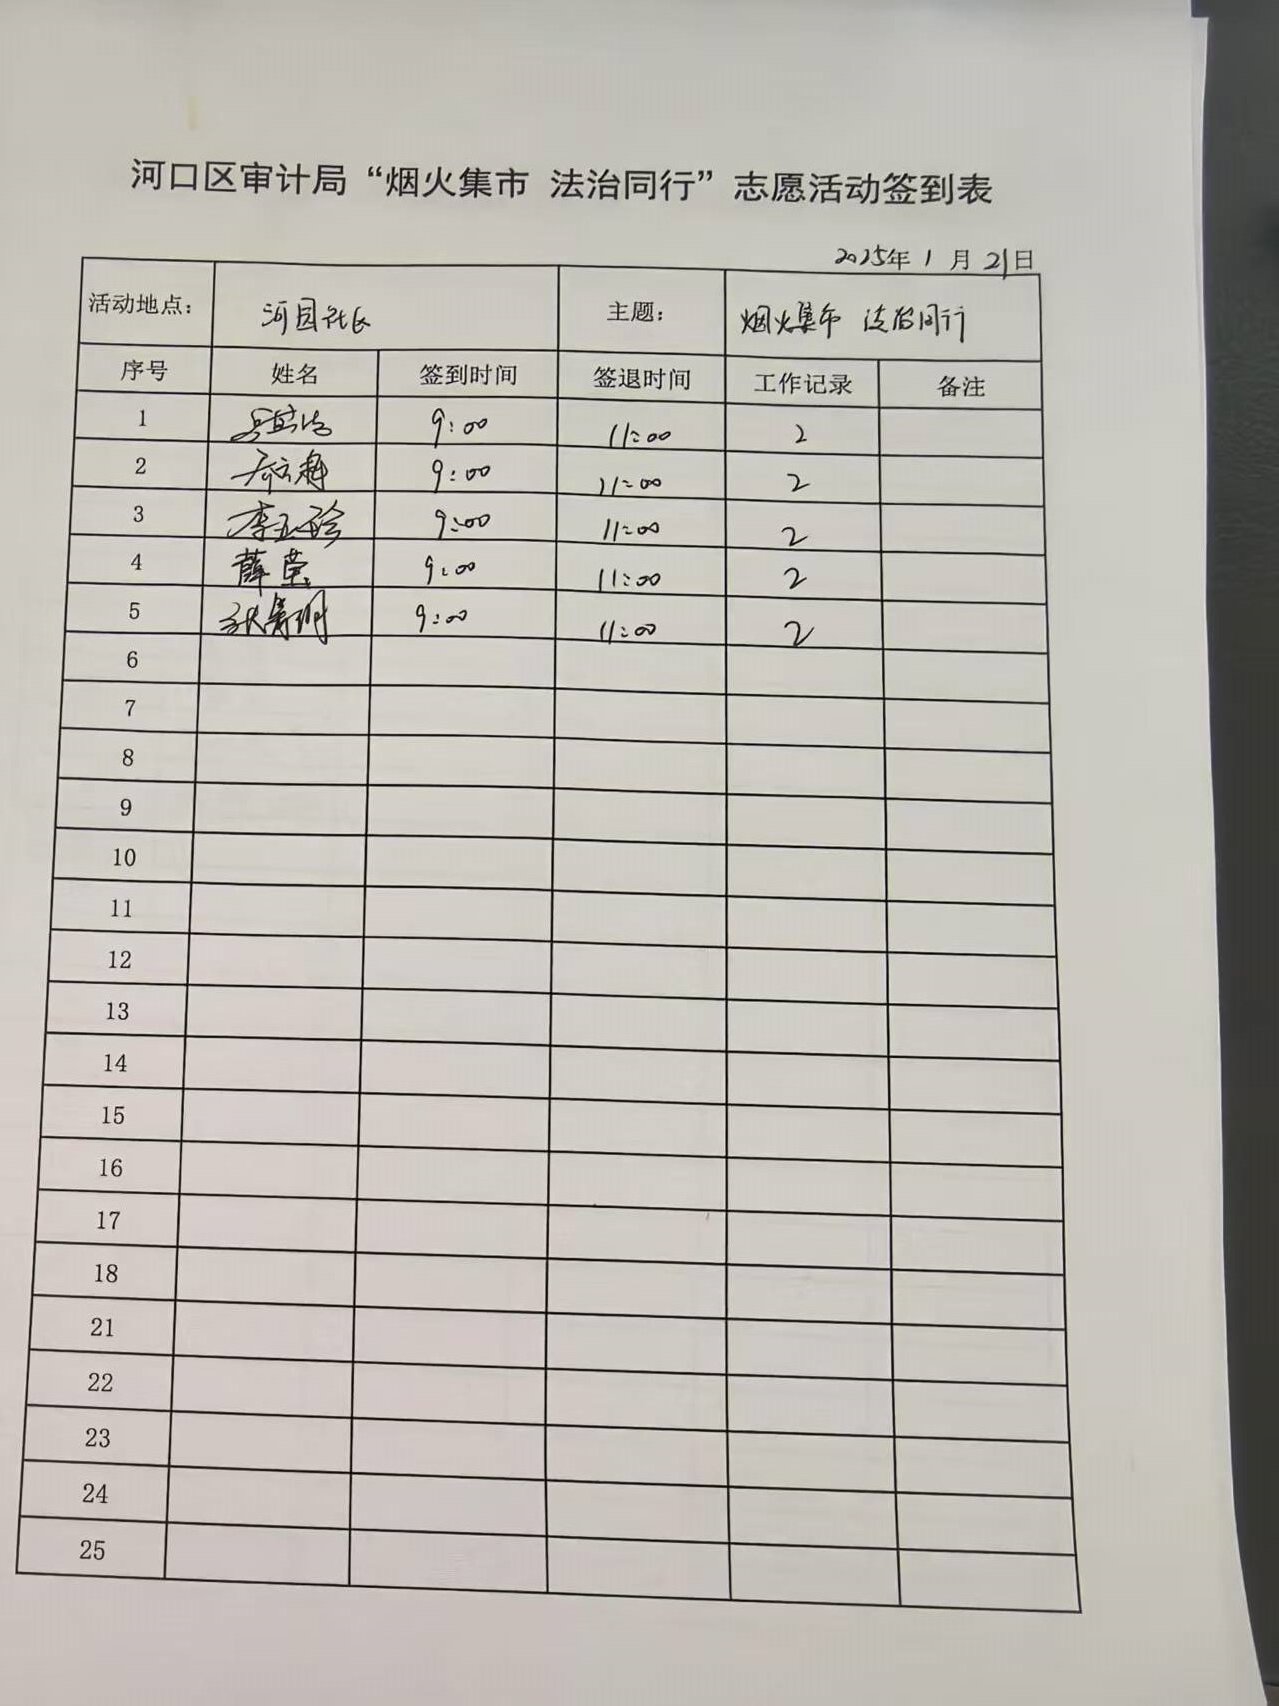 河口区审计局“烟火集市 法治同行”志愿活动签到表
2025年 1 月 21日
活动地点： 河园社区 主题： 烟火集市 法治同行
序号 姓名 签到时间 签退时间 工作记录 备注
1 9:00 11:00 2
2 9:00 11:00 2
3 李玉珍 9:00 11:00 2
4 薛莹 9:00 11:00 2
5 9:00 11:00 2
6
7
8
9
10
11
12
13
14
15
16
17
18
21
22
23
24
25